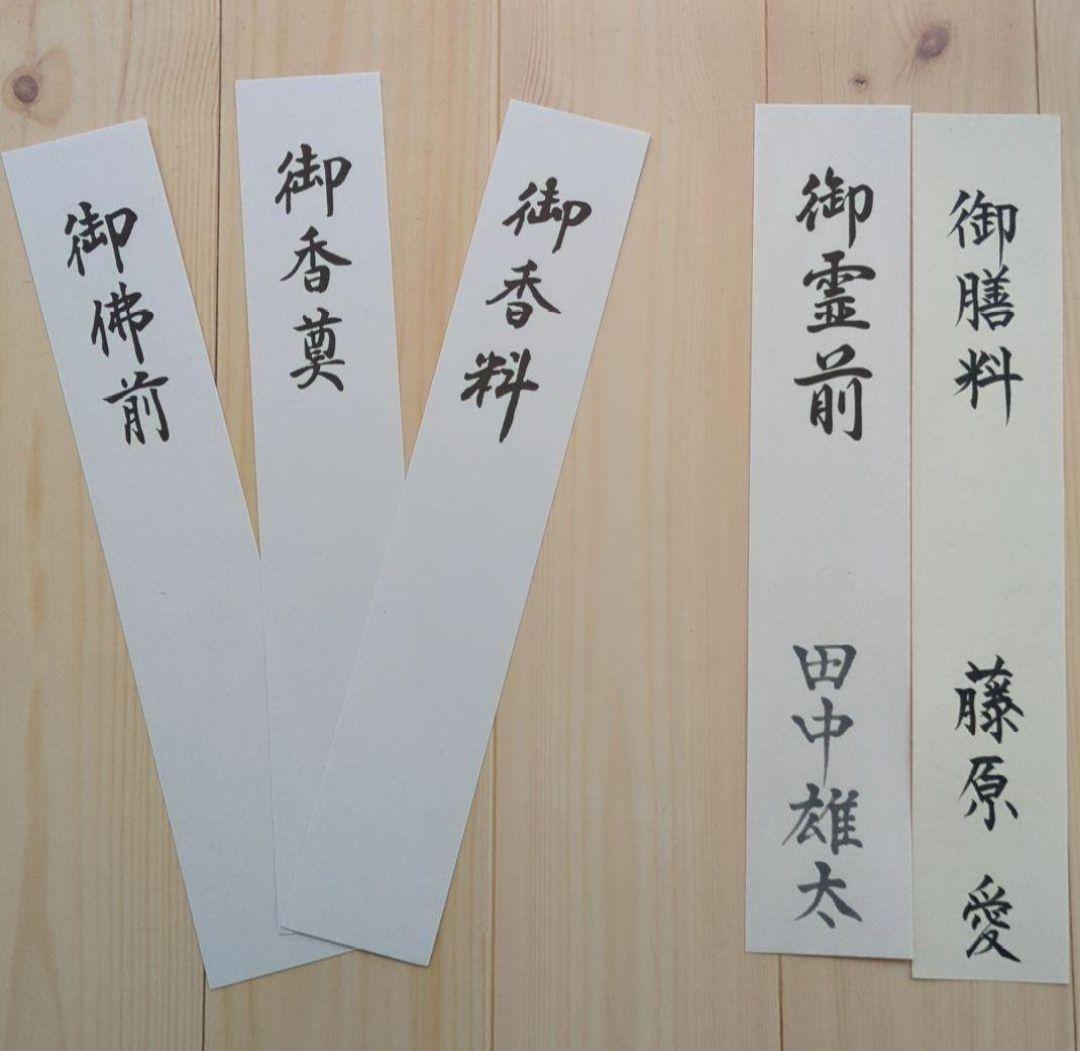 御佛前
御香奠
御香料
御霊前
田中雄太
御膳料
藤原 愛